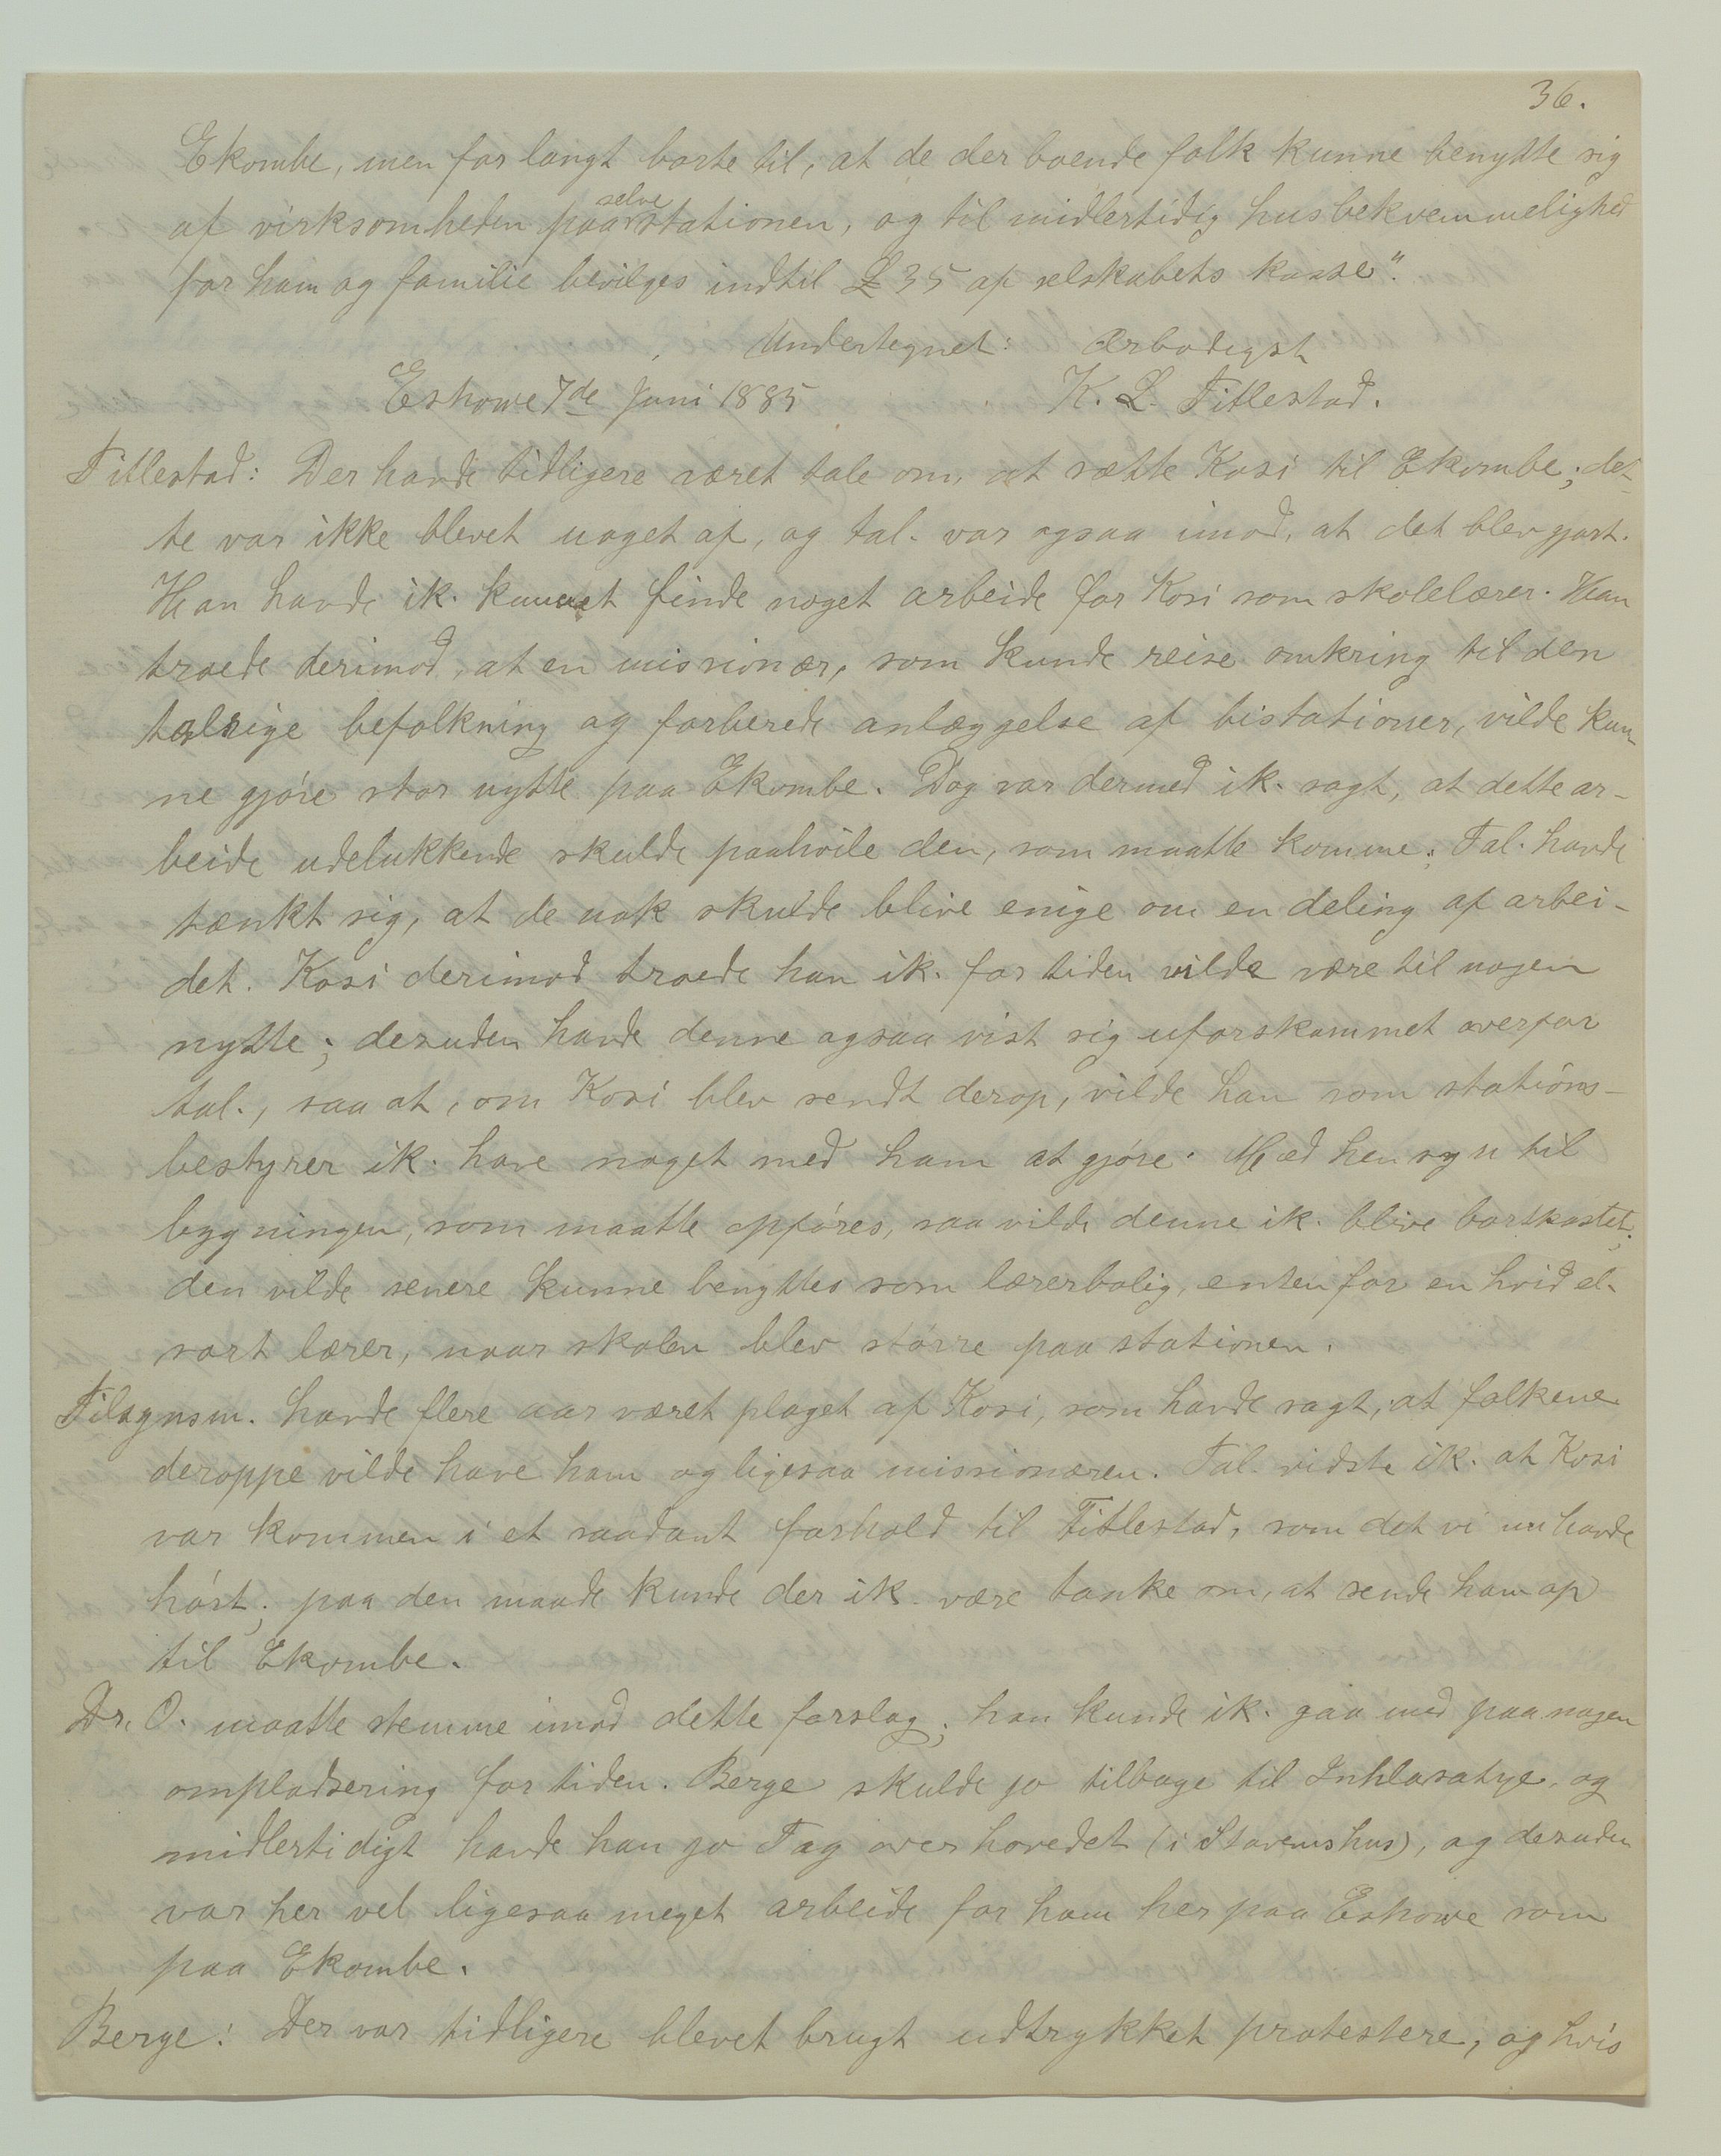 36.
Ekombe, men for langt borte til, at de der boende folk kunne benytte sig
af virksomheden paa selve stationen, og til midlertidig husbekvemmelighed
for ham og familie bevilges indtil £ 35 af selskabets kasse".
Undertegnet: Ærbødigst
Eshowe 7de Juni 1885 K. L. Titlestad.
Titlestad: Der havde tidligere været tale om, at sætte Kosi til Ekombe; det-
te var ikke blevet noget af, og tal. var ogsaa imod, at det blev gjort.
Han havde ik. kunnet finde noget arbeide for Kosi som skolelærer. Han
troede derimod, at en missionær, som kunde reise omkring til den
talrige befolkning og forberede anlæggelse af bistationer, vilde kun-
ne gjøre stor nytte paa Ekombe. Dog var dermed ik. sagt, at dette ar-
beide udelukkende skulde paahvile den, som maatte komme; Tal. havde
tænkt sig, at de nok skulde blive enige om en deling af arbei-
det. Kosi derimod troede han ik. for tiden vilde være til nogen
nytte; desuden havde denne ogsaa vist sig uforskammet overfor
tal., saa at, om Kosi blev sendt derop, vilde han som stations-
bestyrer ik. have noget med ham at gjøre. Med hensyn til
bygningen, som maatte opføres, saa vilde denne ik. blive bortkastet;
den vilde senere kunne benyttes som lærerbolig, enten for en hvid el.
sort lærer, naar skolen blev større paa stationen.
Tilsynsm. havde flere aar været plaget af Kosi, som havde sagt, at folkene
deroppe vilde have ham og ligesaa missionæren. Tal. vidste ik. at Kosi
var kommen i et saadant forhold til Titlestad, som det vi nu havde
hørt; paa den maade kunde der ik. være tanke om, at sende ham op
til Ekombe.
Dr. O. maatte stemme imod dette forslag; han kunde ik. gaa med paa nogen
ompladsering for tiden. Berge skulde jo tilbage til Inhlasatye, og
midlertidigt havde han jo Tag over hovedet (i Stavems hus), og desuden
var her vel ligesaa meget arbeide for ham her paa Eshowe som
paa Ekombe.
Berge: Der var tidligere blevet brugt udtrykket protestere, og hvis